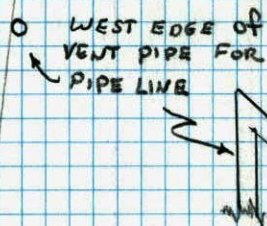 WEST EDGE OF
VENT PIPE FOR
PIPE LINE